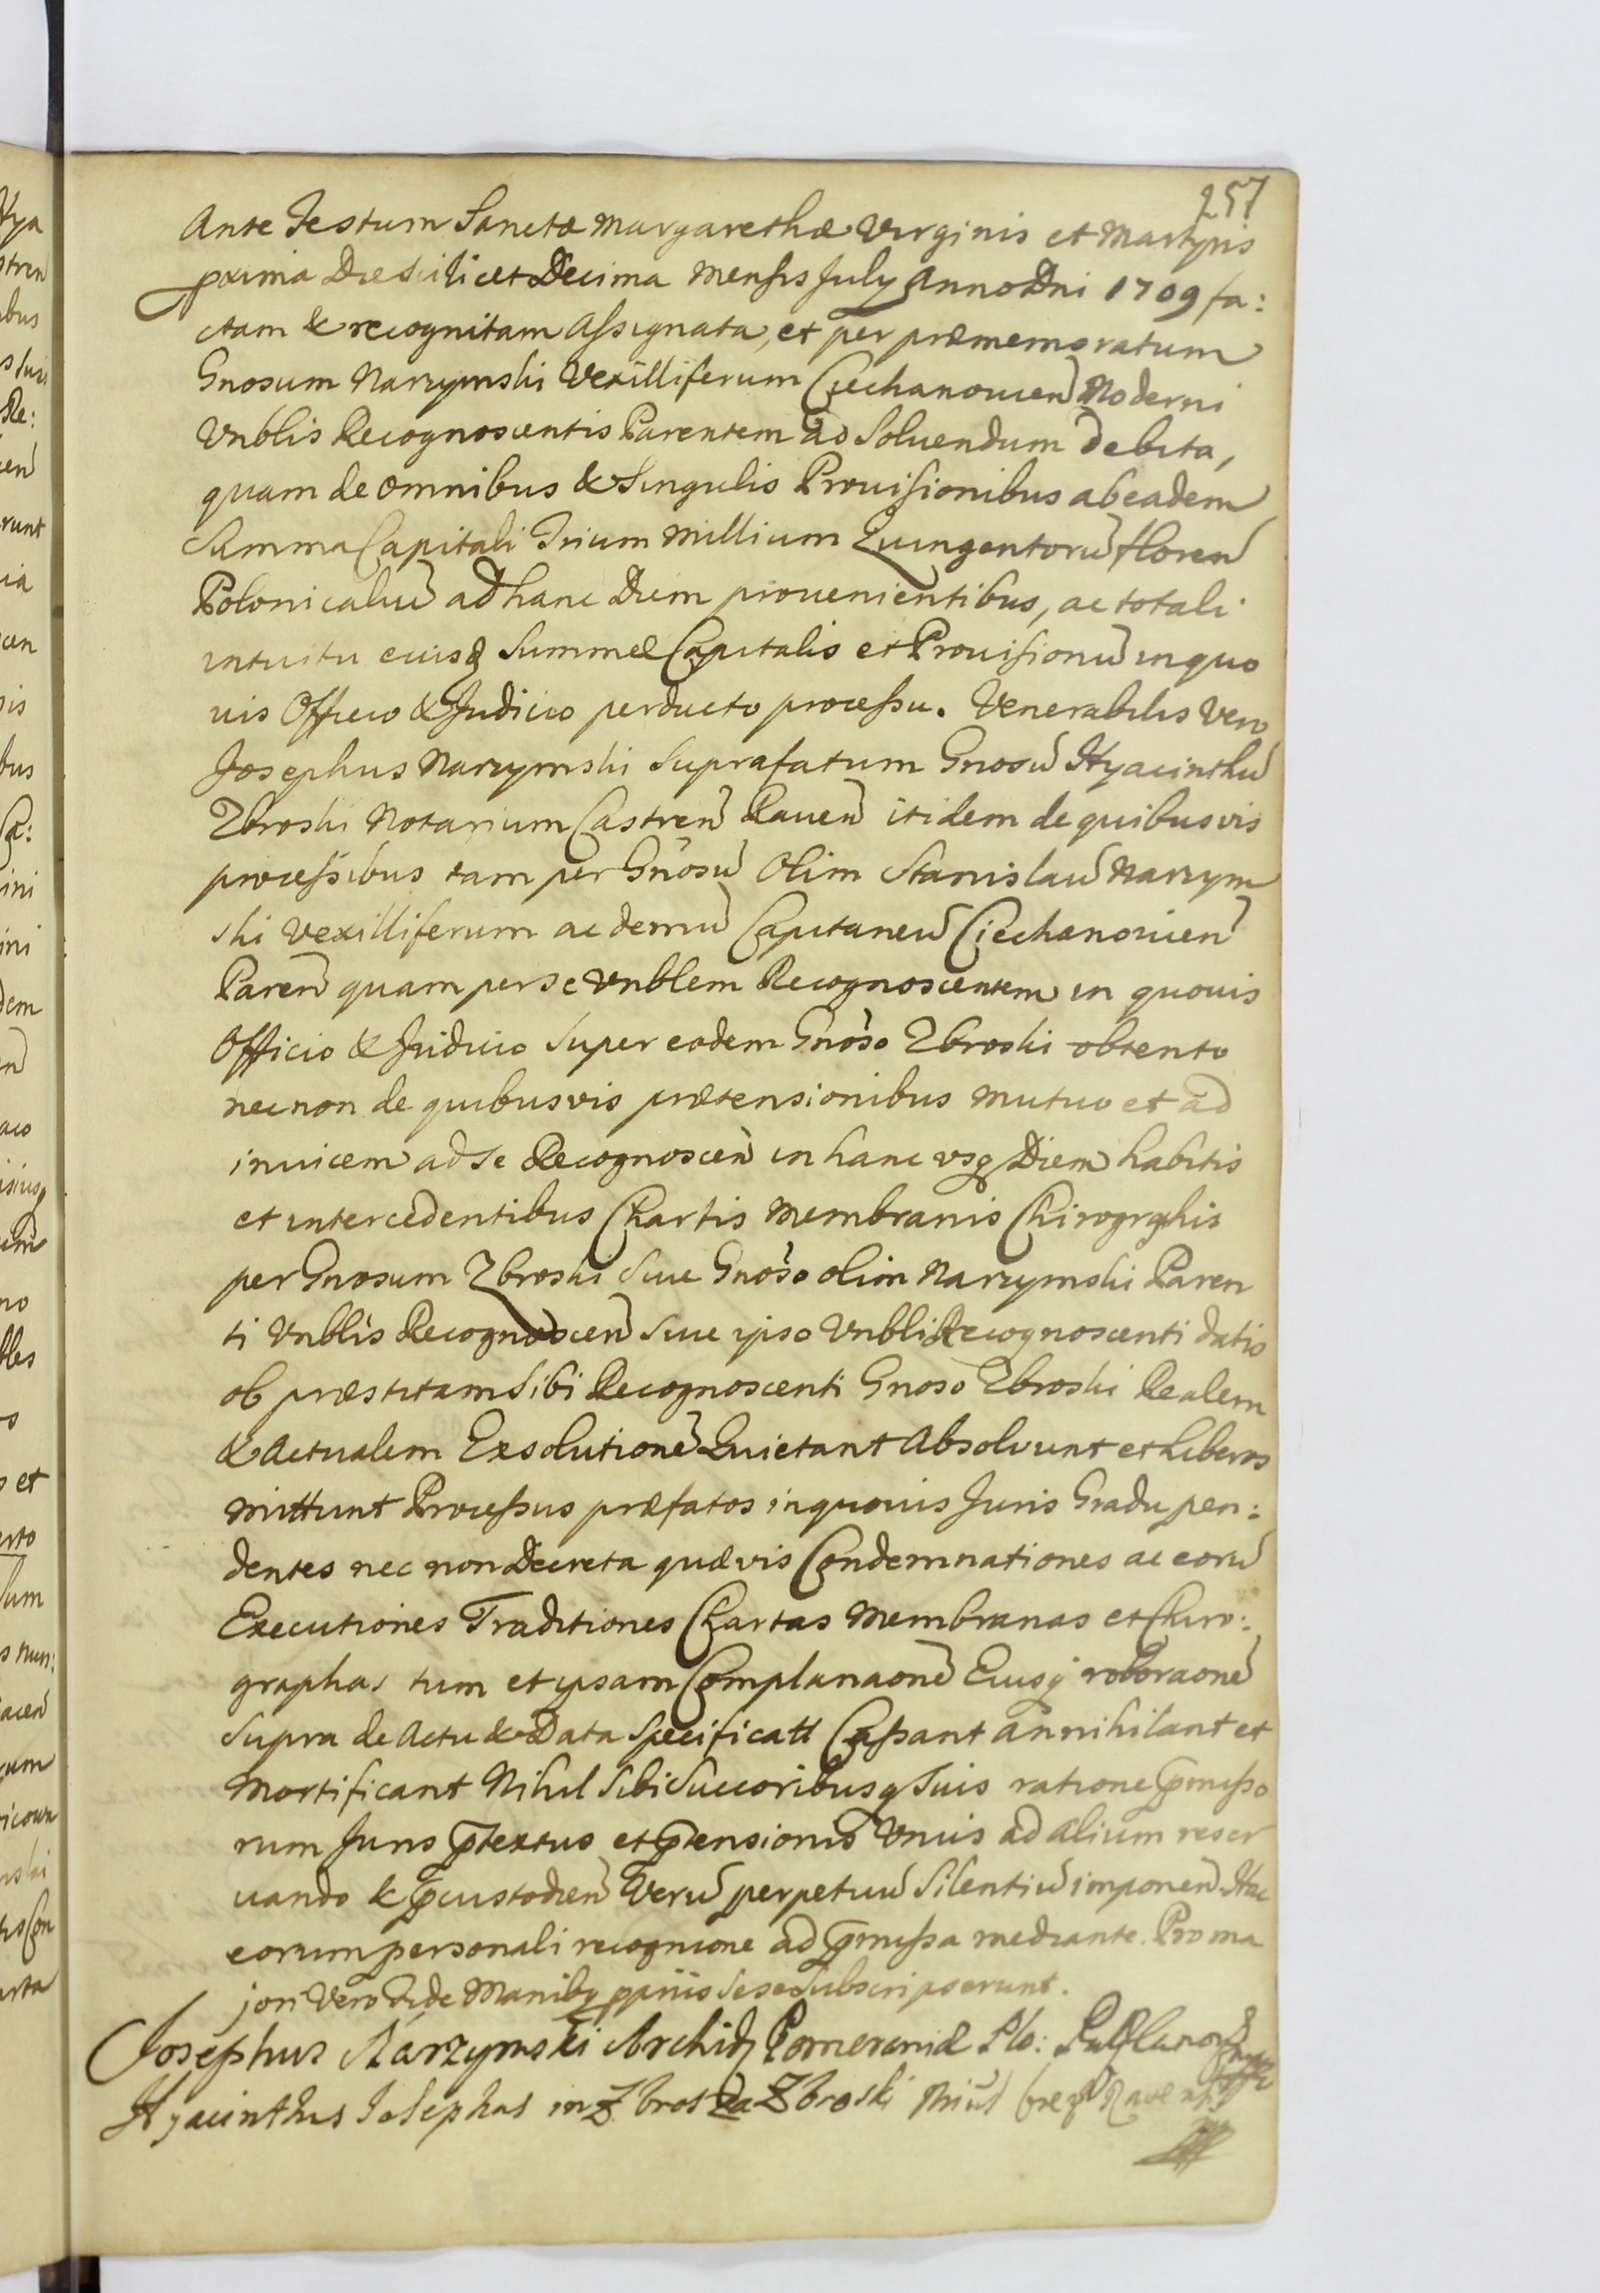 257
Ante Festum Sanctæ Margarethæ Virginis et Martyris
proxima Die scilicet Decima Mensis July Anno Dni 1709 fa:
ctam & recognitam Assignata, et per præmemoratum
Gnosum Narzymski Vexilliferum Ciechanouien Moderni
Vnblis Recognoscentis Parentem ad Soluendum debita,
quam de omnibus & Singulis Prouisionibus ab eadem
Summa Capitali Trium Millium Quingentorū floren
Polonicaliū ad hanc Diem prouenientibus, ac totali
intuitu eiusq Summæ Capitalis et Prouisionū in quo
uis Officio & Judicio perducto processu. Venerabilis Vero
Josephus Narzymski Suprafatum Gnosū Hyacinthū
Zbroski Notarium Castren Rauen itidem de quibusvis
processibus tam per Gnosū Olim Stanislaū Narzym
ski Vexilliferum ac demū Capitaneū Ciechanouien
Paren quam per se Vnblem Recognoscentem in quouis
Officio & Judicio Super eodem Gnoso Zbroski obtento
nec non de quibusvis prætensionibus mutuo et ad
inuicem ad se Recognoscen in hanc vsq Diem habitis
et intercedentibus Chartis Membranis Chirographis
per Gnosum Zbroski Siue Gnoso olim Narzymski Paren
ti Vnblis Recognoscen Siue ipso Vnbli Recognoscenti datis
ob præstitam Sibi Recognoscenti Gnoso Zbroski Realem
& Actualem Exsolutionē Quietant Absoluunt et Liberos
mittunt Processus præfatos in quouis Juris Gradu pen:
dentes nec non Decreta quævis Condemnationes ac eorū
Executiones Traditiones Chartas Membranas et Chiro:
graphas tum et ipsam Complanaonē Eiusq roboraonē
Supra de Actu & Data Specificatt Cassant annihilant et
Mortificant Nihil Sibi Succoribusq Suis ratione pmisso
rum Juris ptextus et ptensionis Vnius ad alium reser
uando & pcustodien Verū perpetuū Silentiū imponen Hac
eorum personali recognione ad pmissa mediante. Pro ma
jori Vero Fide Manibq ppriis Sese Subscripserunt.
Josephus Narzymski Archid Pomeraniæ Plo:
Hyacinthus Josephus in Zbrosza Zbroski